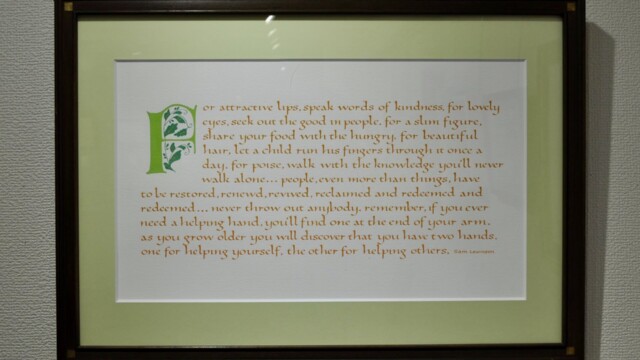 For attractive lips, speak words of kindness, for lovely
eyes, seek out the good in people, for a slim figure,
share your food with the hungry, for beautiful
hair, let a child run his fingers through it once a
day, for poise, walk with the knowledge you'll never
walk alone... people, even more than things, have
to be restored, renewd, revived, reclaimed and redeemed and
redeemed... never throw out anybody. remember, if you ever
need a helping hand, you'll find one at the end of your arm.
as you grow older you will discover that you have two hands.
one for helping yourself, the other for helping others.